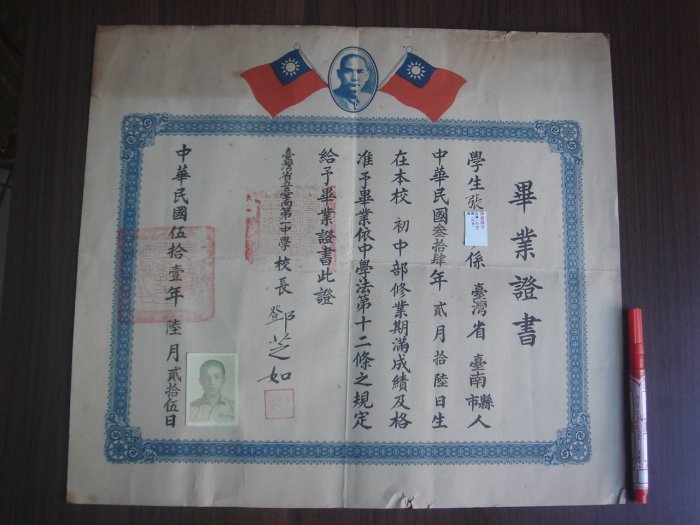 畢業證書
學生張 係臺灣省臺南縣市人
中華民國叁拾肆年貳月拾陸日生
在本校初中部修業期滿成績及格
准予畢業依中學法第十二條之規定
給予畢業證書此證
臺灣省立臺南第一中學校長鄧芝如
中華民國伍拾壹年陸月貳拾伍日